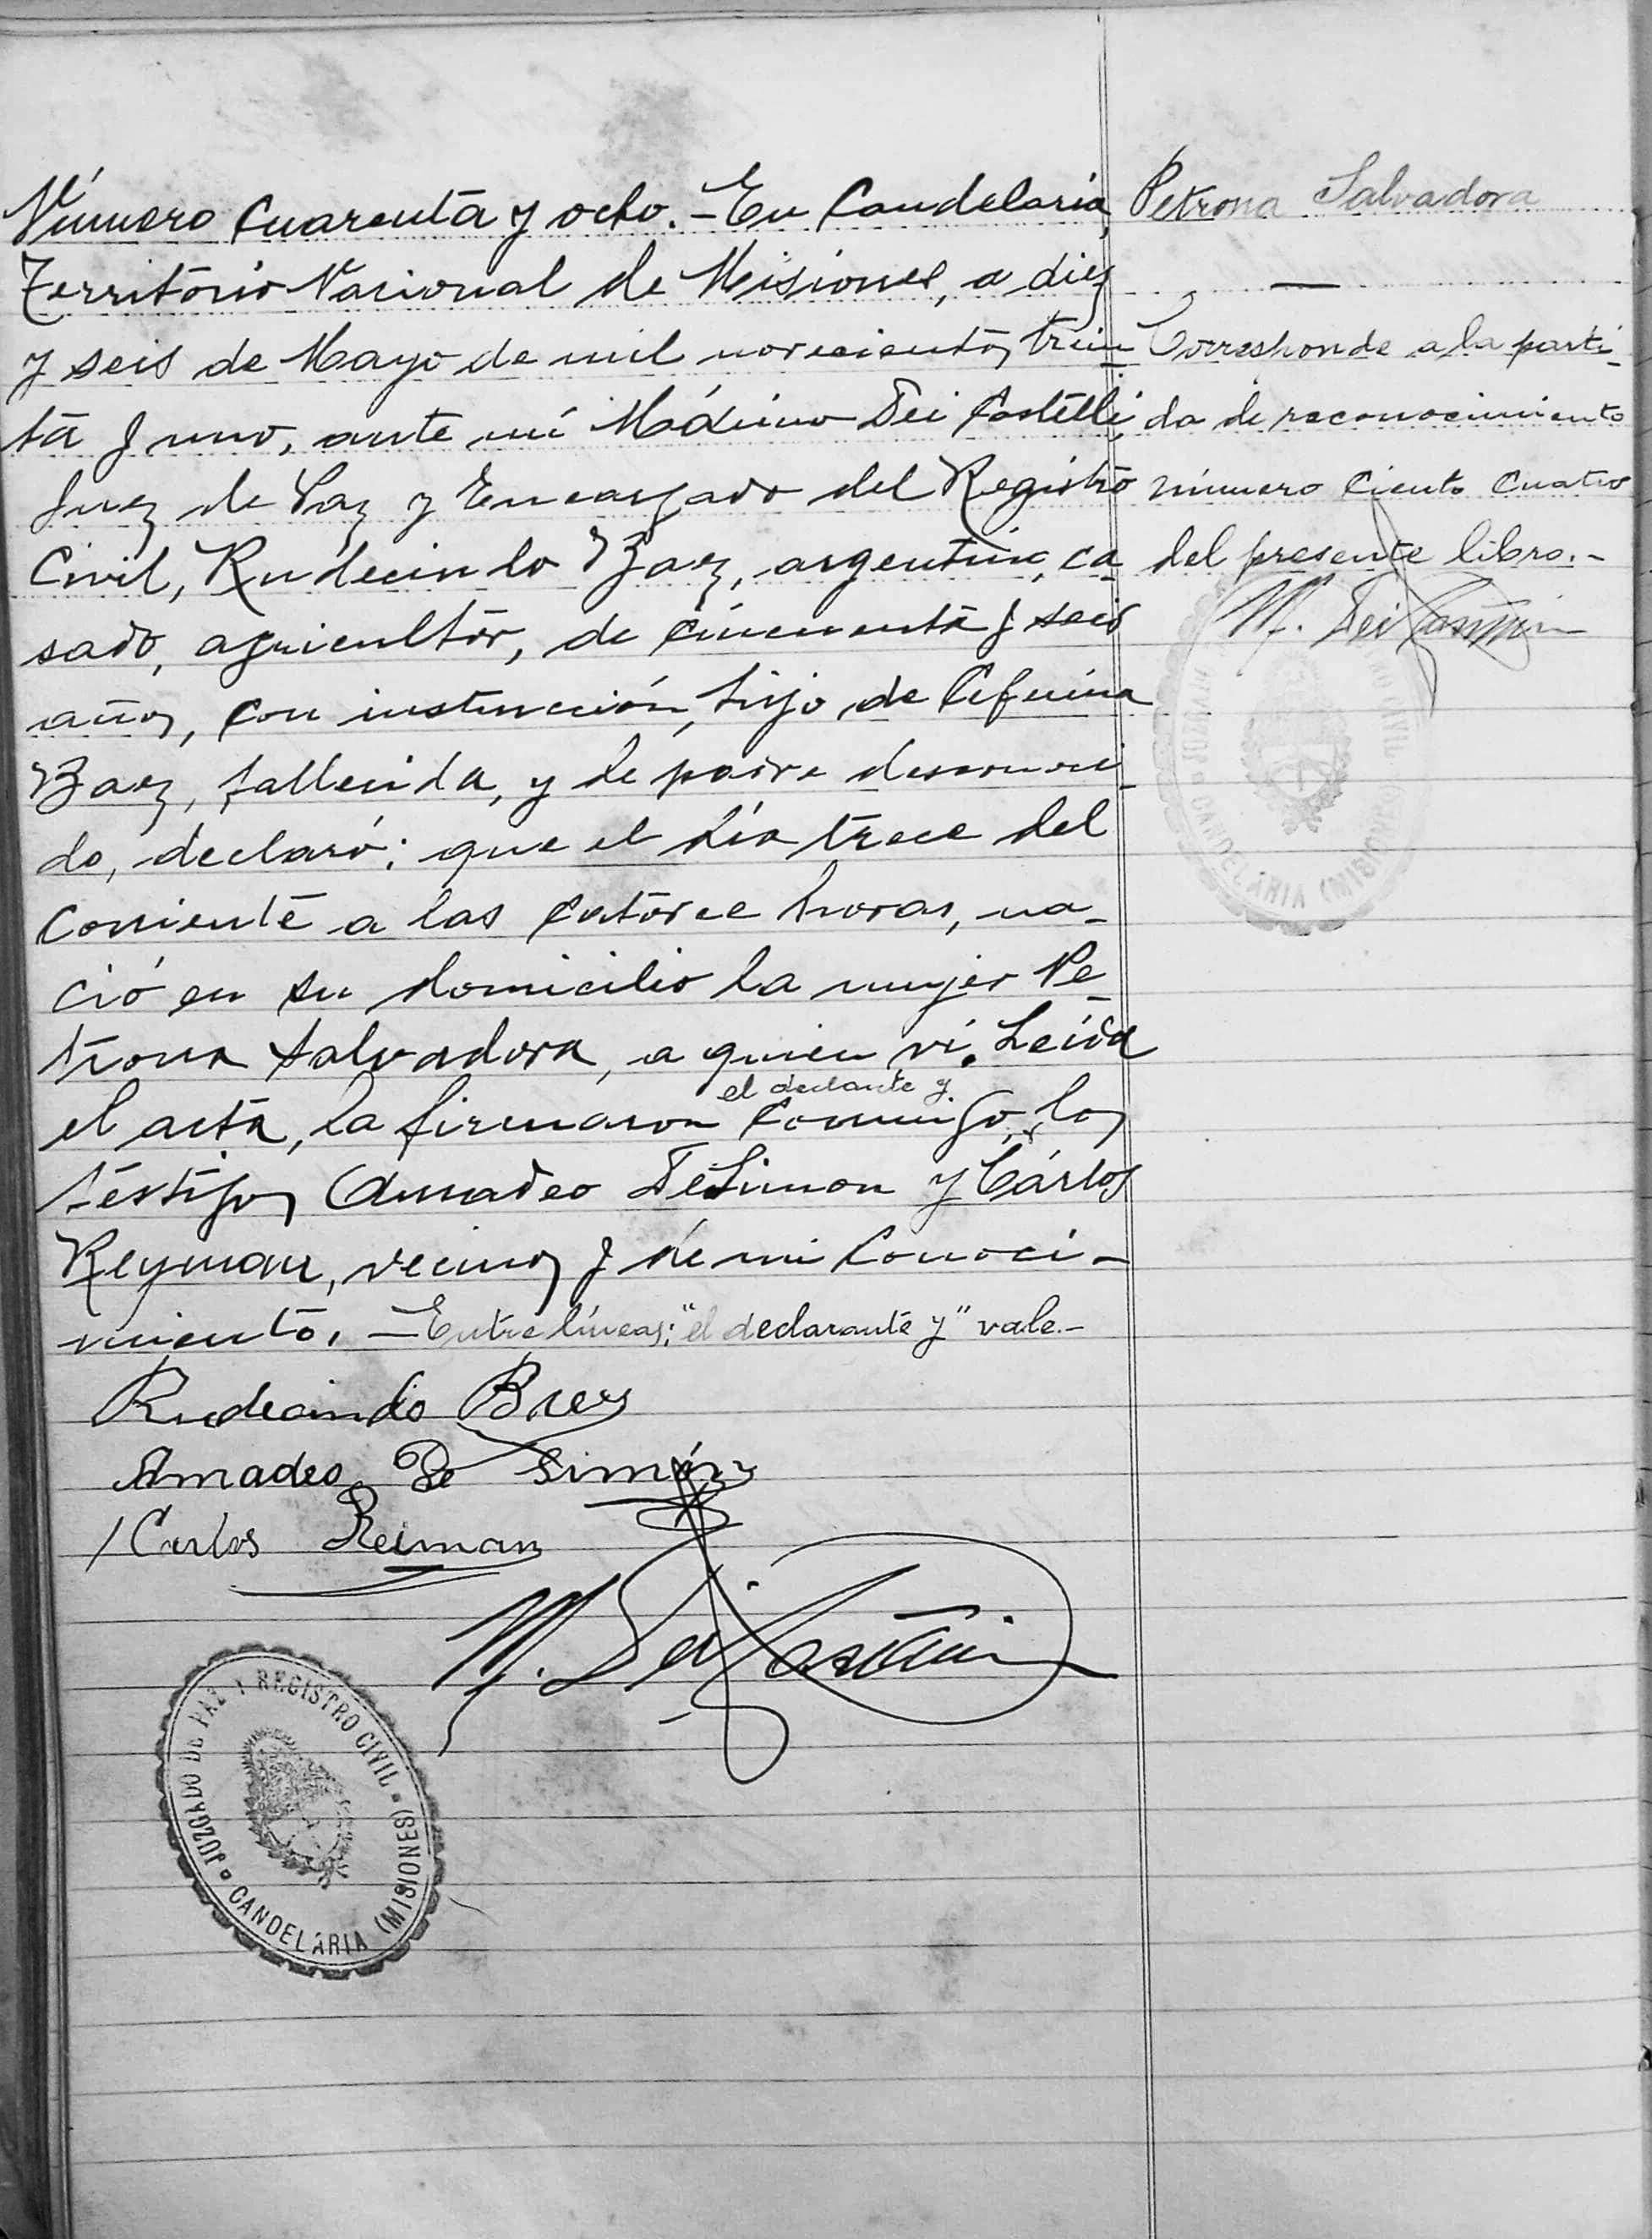 Número Cuarenta y ocho. - En Candelaria,
Territorio Nacional de Misiones, a diez
y seis de Mayo de mil novecientos trein-
ta y uno, ante mí Máximo Dei Castelli,
Juez de Paz y Encargado del Registro
Civil, Rudecindo Baez, argentino, ca-
sado, agricultor, de cincuenta y seis
años, con instrucción, hijo de Ceferina
Baez, fallecida, y de padre desconoci-
do, declaró: que el día trece del
corriente a las catorce horas, na-
ció en su domicilio la mujer Pe-
trona Salvadora, a quien vi. Leída
el declante y
el acta, la firmaron conmigo, los
testigos Amadeo DeSimon y Cárlos
Reyman, vecinos y de mi conoci-
miento. - Entre líneas: "el declarante y" vale.-
Rudecindo Baez
Amadeo De Simón
Carlos Reiman
M. Dei Castelli
JUZGADO DE PAZ Y REGISTRO CIVIL
CANDELARIA (MISIONES)
Petrona Salvadora
—
Corresponde a la parti-
da de reconocimiento
número ciento cuatro
del presente libro.-
M. Dei Castelli
CANDELARIA (MISIONES)